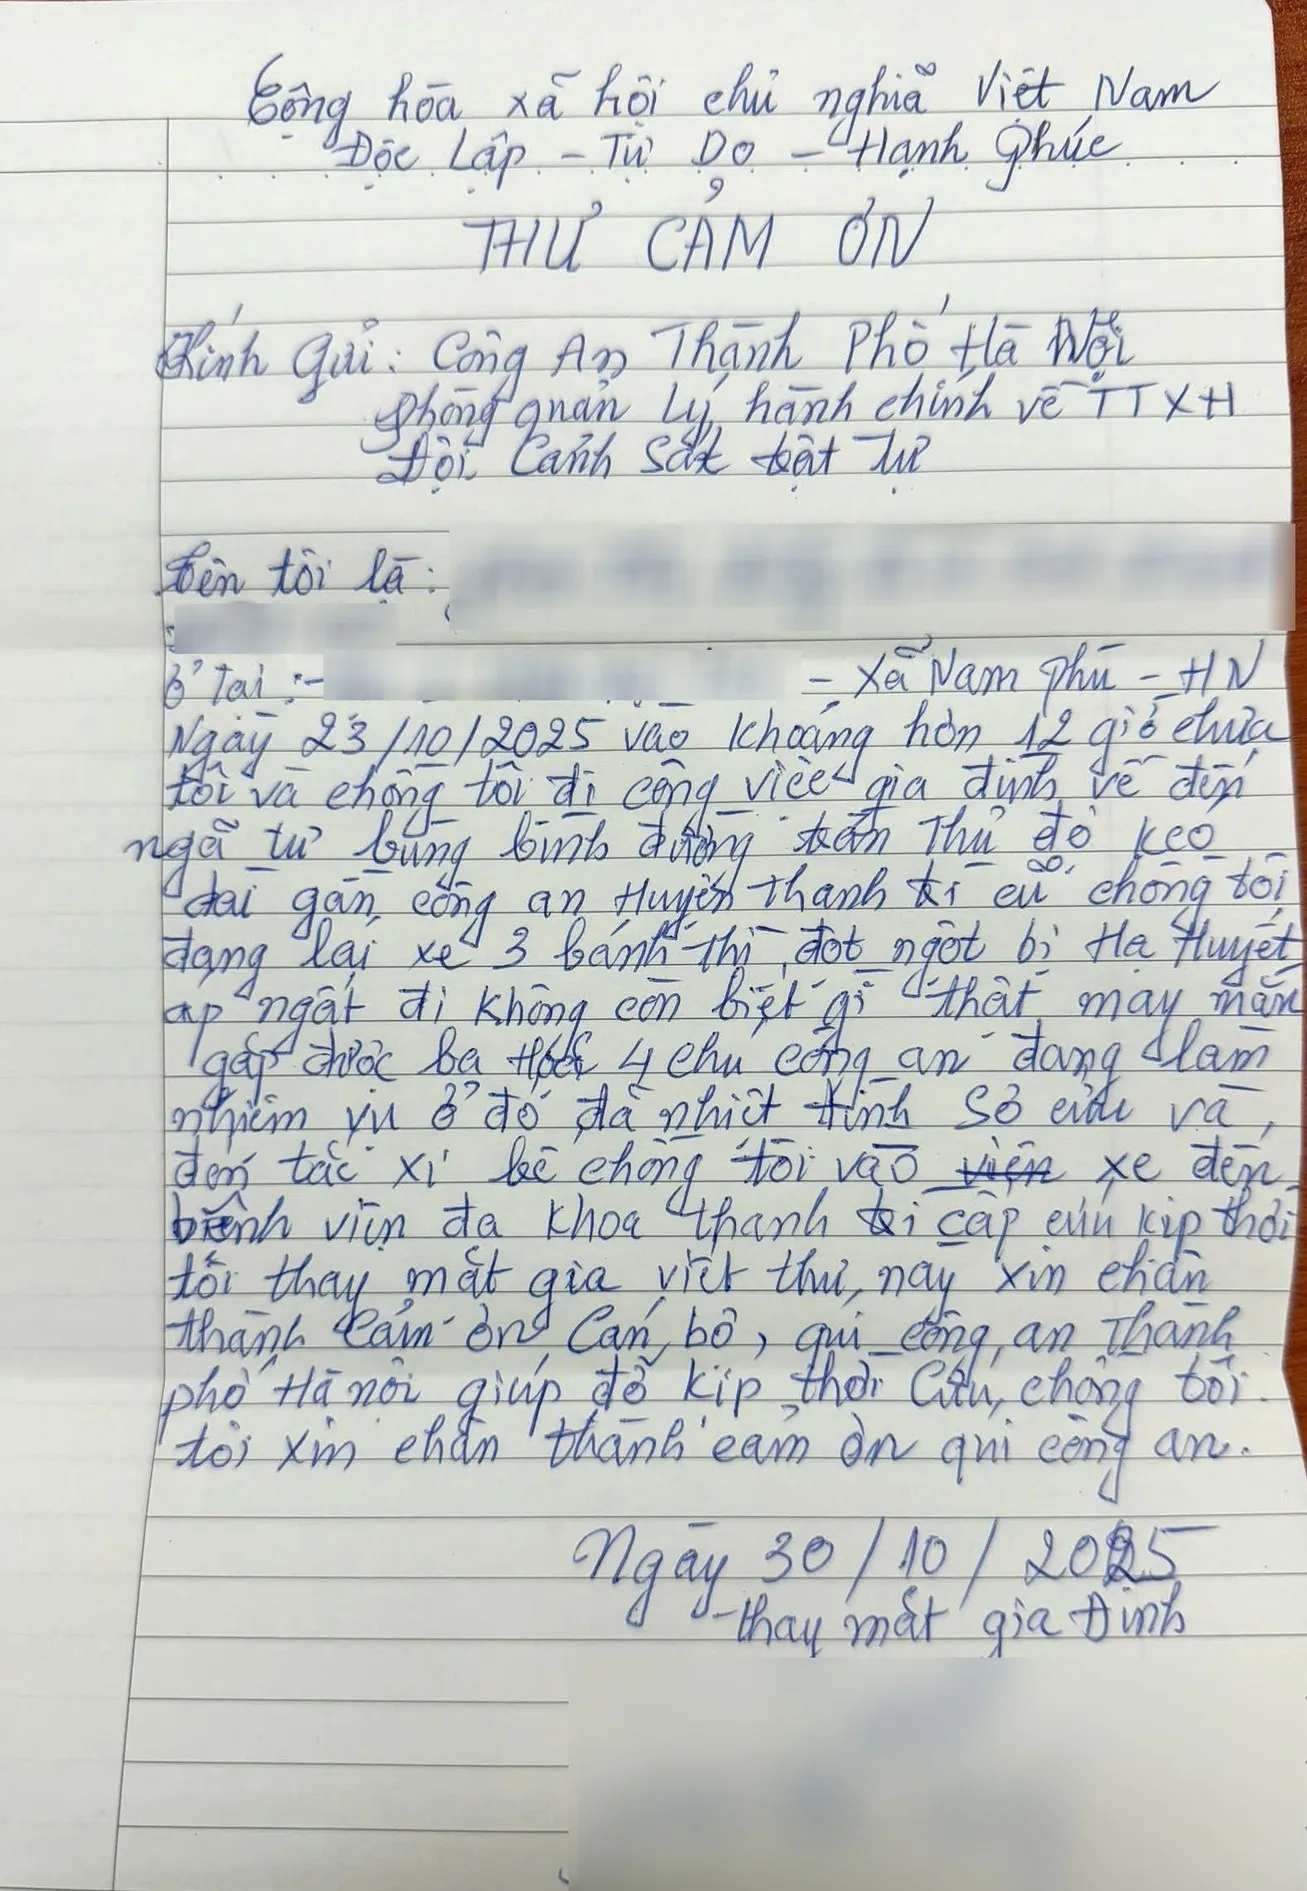 Cộng hòa xã hội chủ nghĩa Việt Nam
Độc Lập - Tự Do - Hạnh Phúc
THƯ CẢM ƠN
Kính Gửi: Công An Thành Phố Hà Nội
phòng quản Lý hành chính về TTXH
Đội Cảnh Sát trật Tự
tên tôi là:
ở tại :-
- Xã Nam Phù - HN
Ngày 23/10/2025 vào khoảng hơn 12 giờ chưa
tôi và chồng tôi đi công việc gia đình về đến
ngã tư bùng binh đường trần Thủ độ kéo
dài gần công an Huyện Thanh trì cũ chồng tôi
đang lái xe 3 bánh thì đột ngột bị Hạ Huyết
áp ngất đi không còn biết gì thật may mắn
gặp được ba 4 chú công an đang làm
nhiệm vụ ở đó đã nhiệt tình sơ cứu và
đón tắc xi bê chồng tôi vào viện xe đến
bệnh viện đa khoa thanh trì cấp cứu kịp thời
tôi thay mặt gia viết thư này xin chân
thành cảm ơn Cán bộ, quí công an Thành
phố Hà nội giúp đỡ kịp thời Cứu chồng tôi.
tôi xin chân thành cảm ơn quí công an.
Ngày 30/10/2025
thay mặt gia Đình